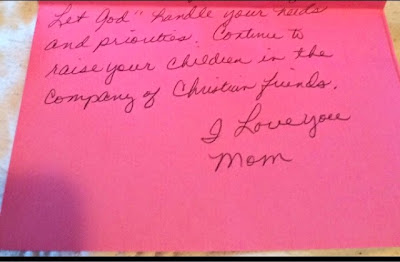 Let God" handle your needs
and priorities. Continue to
raise your children in the
company of Christian friends.
I Love you
Mom